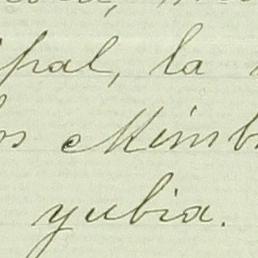 ipal, la
os Mimb
yubia.